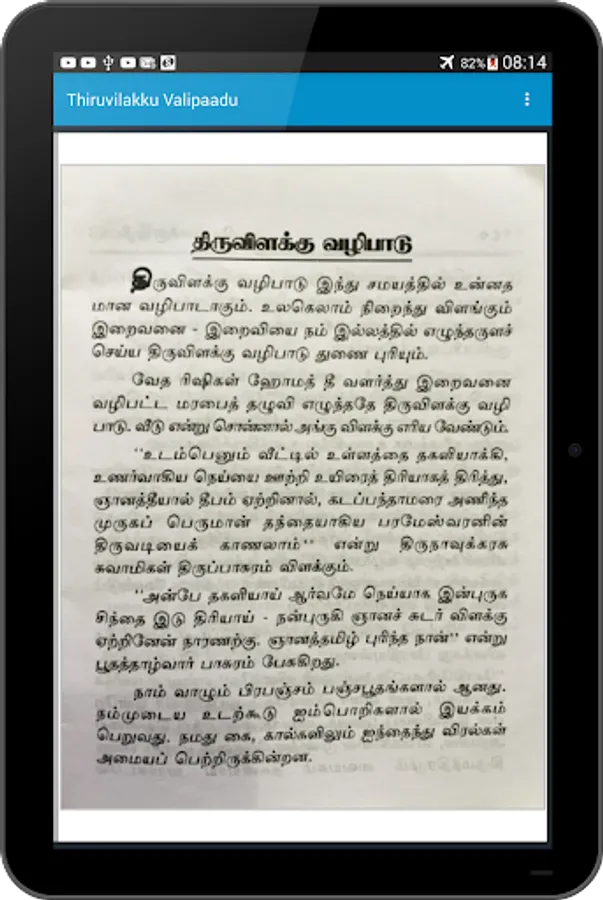 82% 08:14
Thiruvilakku Valipaadu
திருவிளக்கு வழிபாடு
திருவிளக்கு வழிபாடு இந்து சமயத்தில் உன்னத
மான வழிபாடாகும். உலகெலாம் நிறைந்து விளங்கும்
இறைவனை - இறைவியை நம் இல்லத்தில் எழுந்தருளச்
செய்ய திருவிளக்கு வழிபாடு துணை புரியும்.
வேத ரிஷிகள் ஹோமத் தீ வளர்த்து இறைவனை
வழிபட்ட மரபைத் தழுவி எழுந்ததே திருவிளக்கு வழி
பாடு. வீடு என்று சொன்னால் அங்கு விளக்கு எரிய வேண்டும்.
"உடம்பெனும் வீட்டில் உள்ளத்தை தகளியாக்கி,
உணர்வாகிய நெய்யை ஊற்றி உயிரைத் திரியாகத் திரித்து,
ஞானத்தீயால் தீபம் ஏற்றினால், கடப்பந்தாமரை அணிந்த
முருகப் பெருமான் தந்தையாகிய பரமேஸ்வரனின்
திருவடியைக் காணலாம்" என்று திருநாவுக்கரசு
சுவாமிகள் திருப்பாசுரம் விளக்கும்.
"அன்பே தகளியாய் ஆர்வமே நெய்யாக இன்புருக
சிந்தை இடு திரியாய் - நன்புருகி ஞானச் சுடர் விளக்கு
ஏற்றினேன் நாரணற்கு. ஞானத்தமிழ் புரிந்த நான்" என்று
பூதத்தாழ்வார் பாசுரம் பேசுகிறது.
நாம் வாழும் பிரபஞ்சம் பஞ்சபூதங்களால் ஆனது.
நம்முடைய உடற்கூடு ஐம்பொறிகளால் இயக்கம்
பெறுவது. நமது கை, கால்களிலும் ஐந்தைந்து விரல்கள்
அமையப் பெற்றிருக்கின்றன.